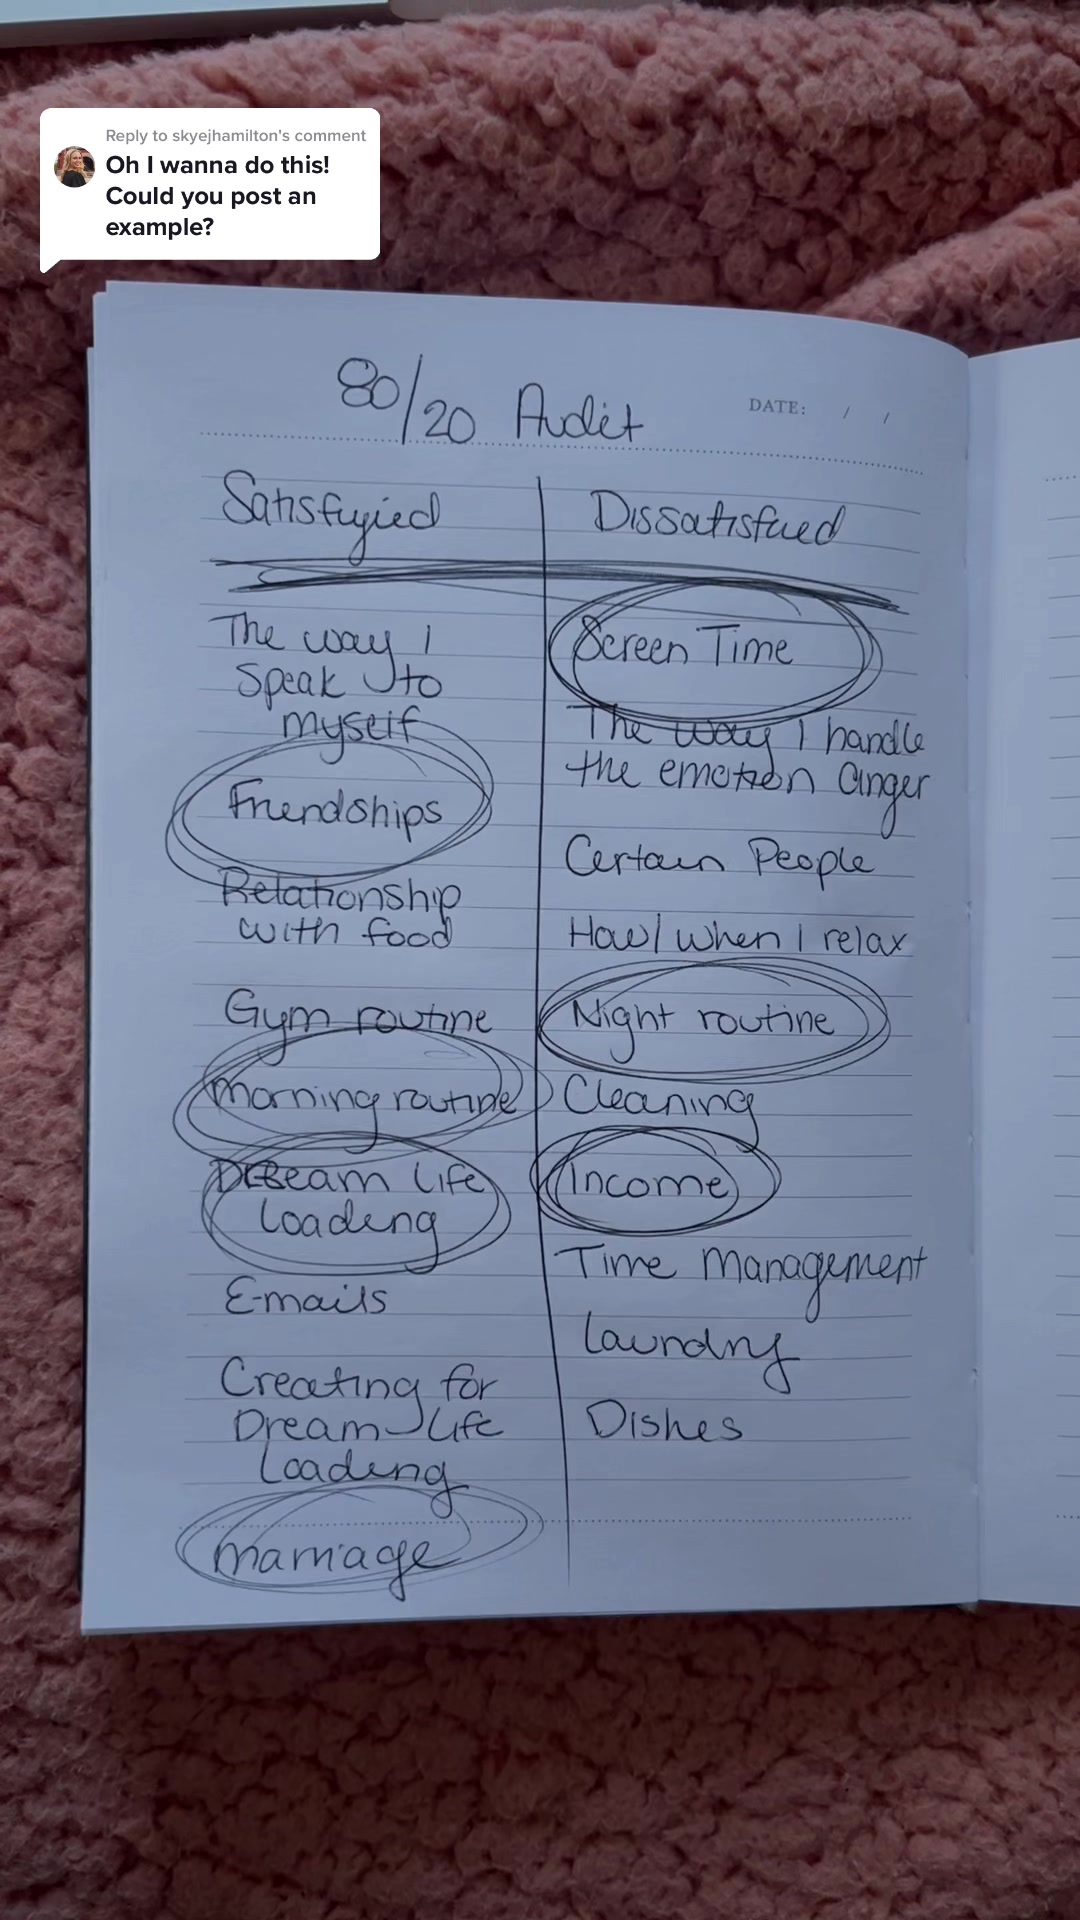 Reply to skyejhamilton's comment
Oh I wanna do this!
Could you post an
example?
80/20 Audit
DATE: / /
Satisfyied
The way I
speak to
myself
Friendships
Relationship
with food
Gym routine
morning routine
Dream Life
Loading
E-mails
Creating for
Dream Life
Loading
marriage
Dissatisfied
Screen Time
The way I handle
the emotion anger
Certain People
How/when I relax
Night routine
Cleaning
Income
Time Management
Laundry
Dishes